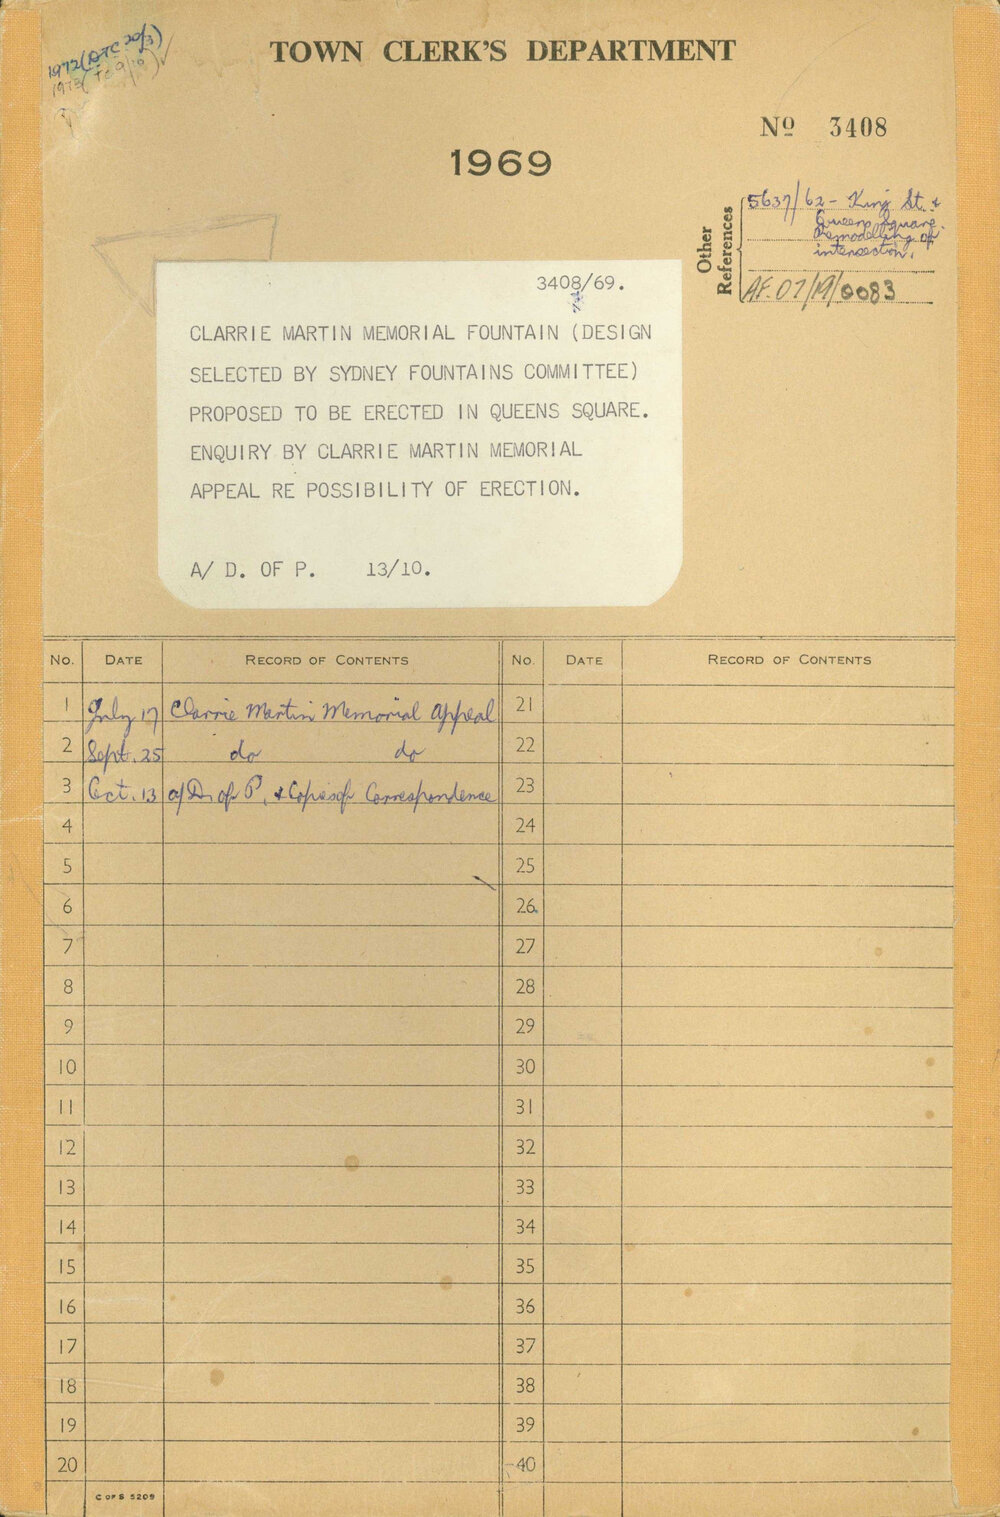 1972 (DTC 20/3)
1973 (TC 9/10)
TOWN CLERK'S DEPARTMENT
Nº 3408
1969
Other References
5637/62 - King St. &
Queens Square.
Remodelling of
intersection.
AF. 07/19/0083
3408/69.
CLARRIE MARTIN MEMORIAL FOUNTAIN (DESIGN
SELECTED BY SYDNEY FOUNTAINS COMMITTEE)
PROPOSED TO BE ERECTED IN QUEENS SQUARE.
ENQUIRY BY CLARRIE MARTIN MEMORIAL
APPEAL RE POSSIBILITY OF ERECTION.
A/ D. OF P. 13/10.
No. DATE RECORD OF CONTENTS No. DATE RECORD OF CONTENTS
1 July 17 Clarrie Martin Memorial Appeal 21
2 Sept. 25 do do 22
3 Oct. 13 a/D. of P. & Copies of Correspondence 23
4 24
5 25
6 26
7 27
8 28
9 29
10 30
11 31
12 32
13 33
14 34
15 35
16 36
17 37
18 38
19 39
20 40
C OF S 5209